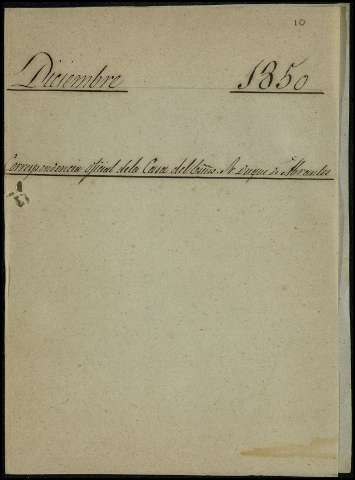 10
Diciembre 1850
Correspondencia oficial de la Casa del Excmo. Sr. Duque de Abrantes